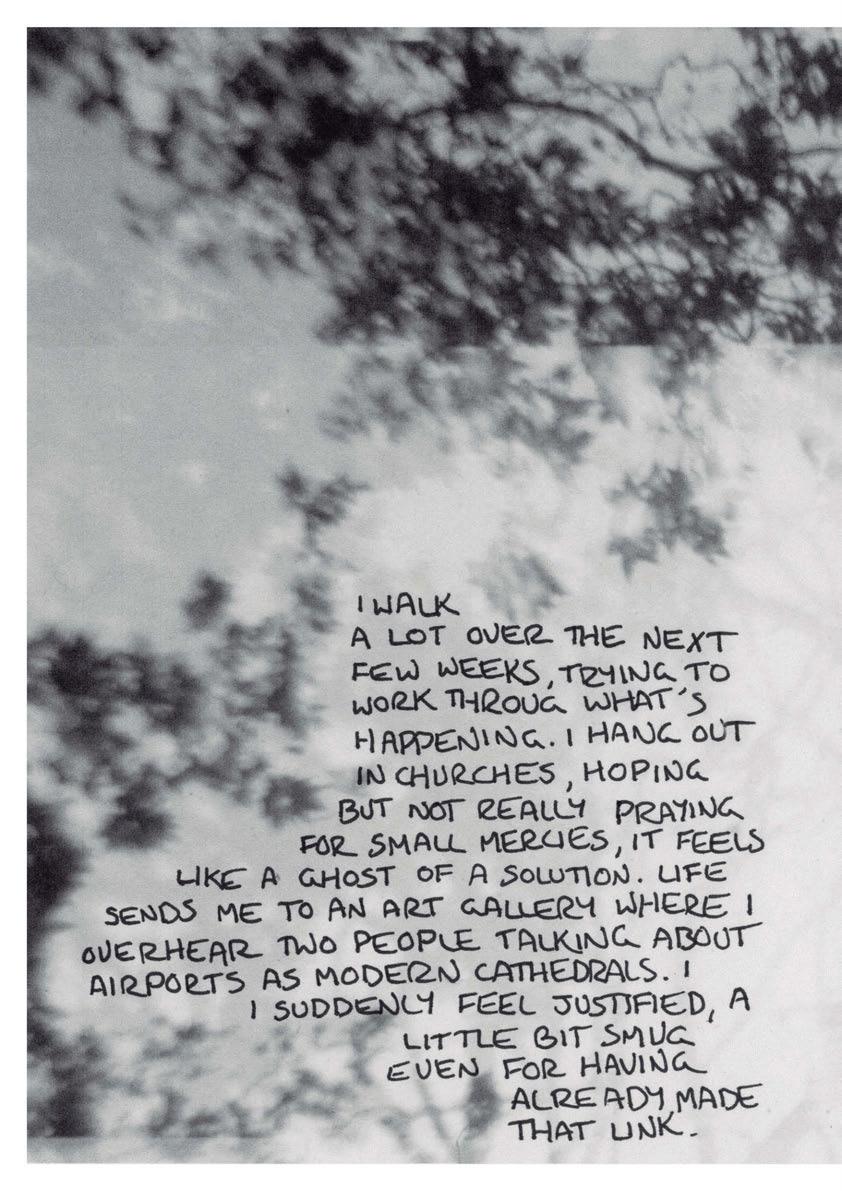 I WALK
A LOT OVER THE NEXT
FEW WEEKS, TRYING TO
WORK THROUG WHAT'S
HAPPENING. I HANG OUT
IN CHURCHES, HOPING
BUT NOT REALLY PRAYING
FOR SMALL MERCIES, IT FEELS
LIKE A GHOST OF A SOLUTION. LIFE
SENDS ME TO AN ART GALLERY WHERE I
OVERHEAR TWO PEOPLE TALKING ABOUT
AIRPORTS AS MODERN CATHEDRALS. I
I SUDDENLY FEEL JUSTIFIED, A
LITTLE BIT SMUG
EVEN FOR HAVING
ALREADY MADE
THAT LINK.